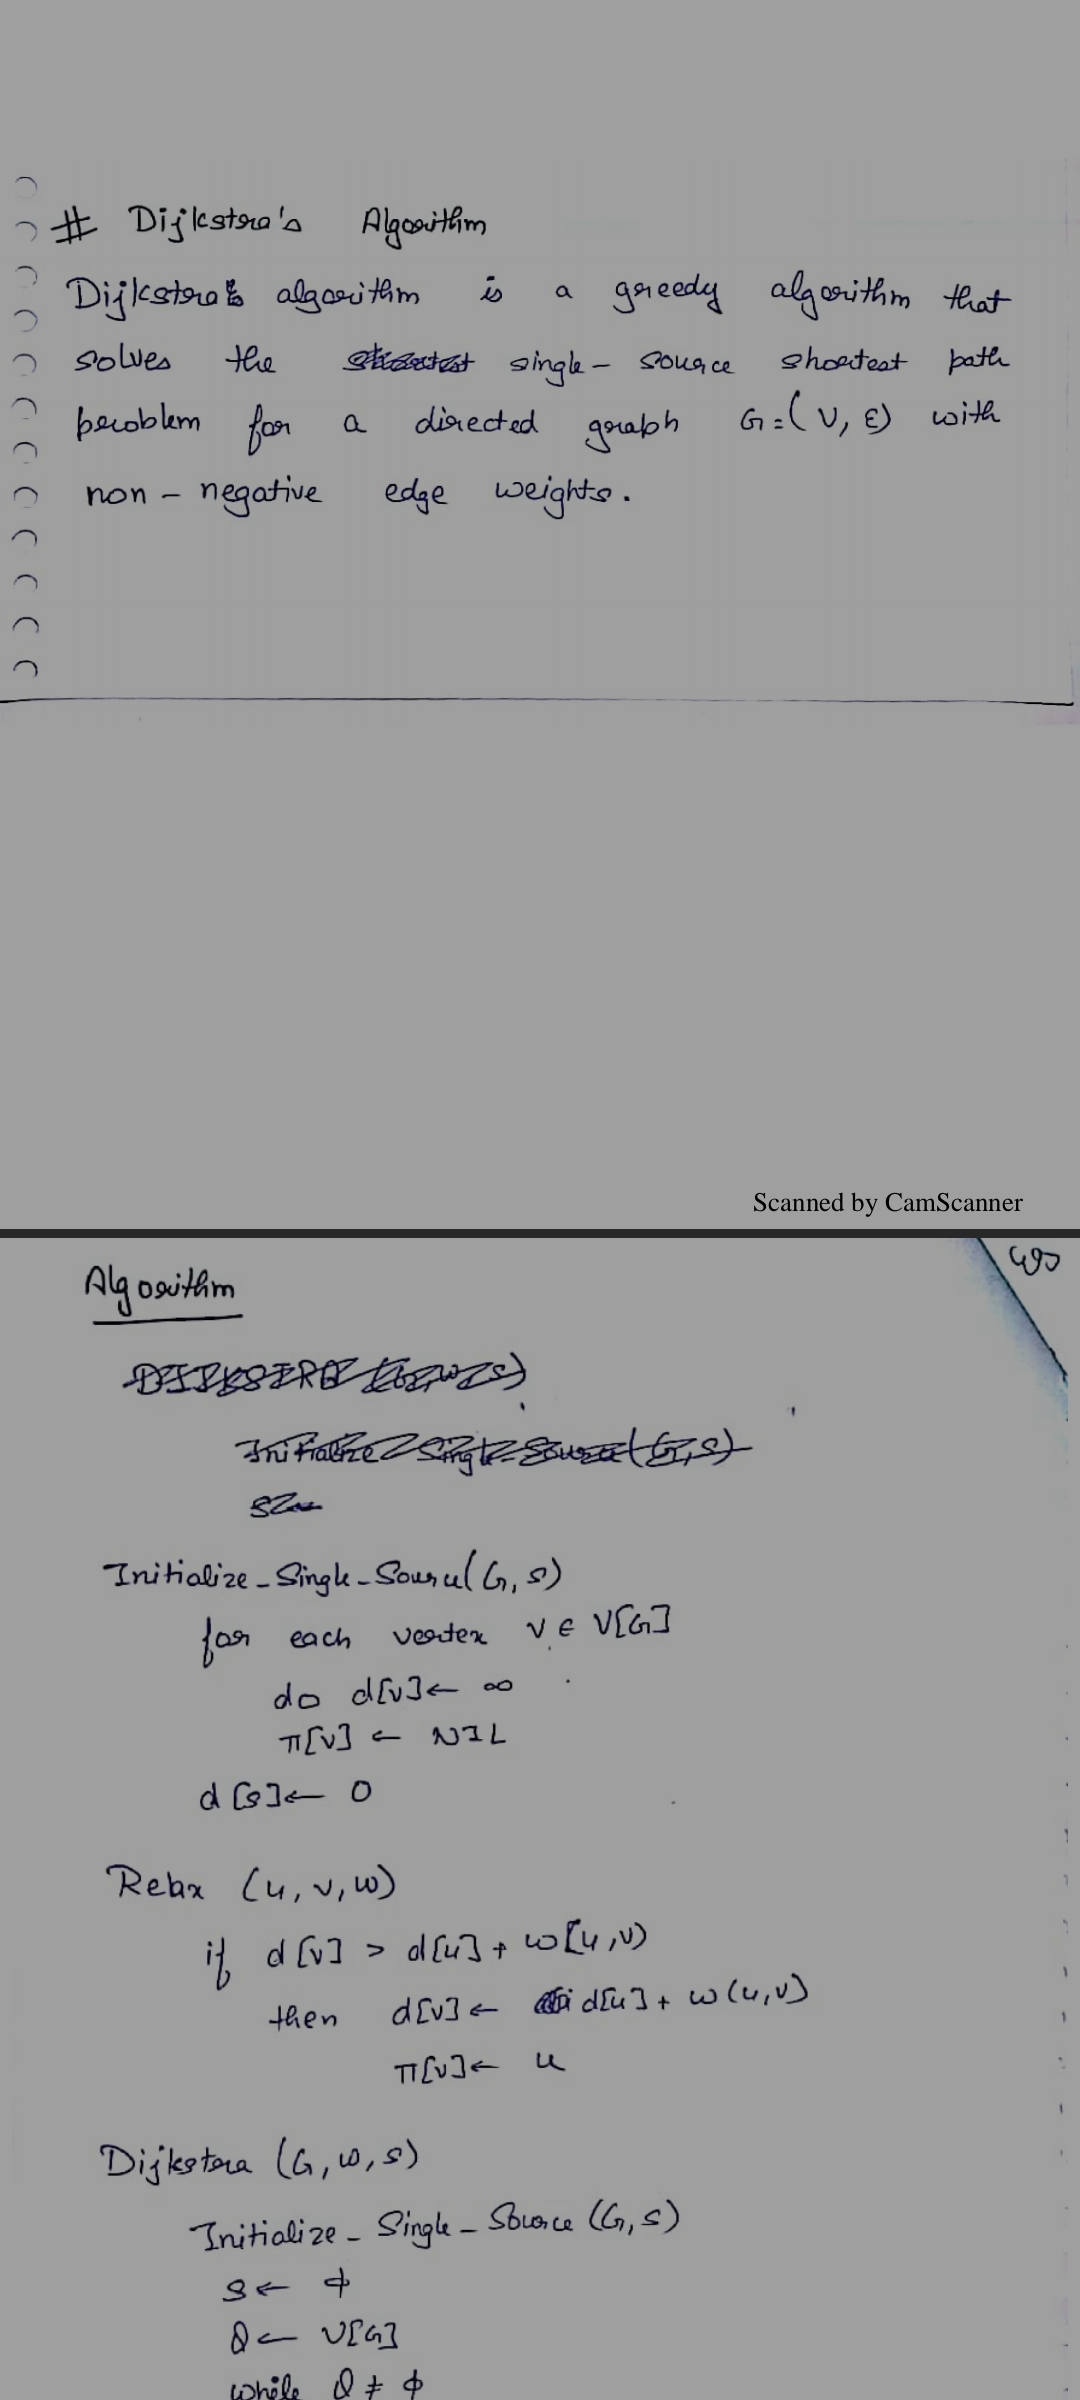 # Dijkstra's Algorithm
Dijkstra's algorithm is a greedy algorithm that
solves the single-source shortest path
problem for a directed graph G=(V, E) with
non-negative edge weights.
Scanned by CamScanner
Algorithm
DIJKSTRA (G,w,s)
Initialize-Single-Source(G,s)
Initialize-Single-Source(G,s)
for each vertex v ∈ V[G]
do d[v]← ∞
π[v] ← NIL
d[s]← 0
Relax (u,v,w)
if d[v] > d[u] + w[u,v)
then d[v]← d[u] + w(u,v)
π[v]← u
Dijkstra (G,w,s)
Initialize-Single-Source(G,s)
S← φ
Q← V[G]
while Q ≠ φ